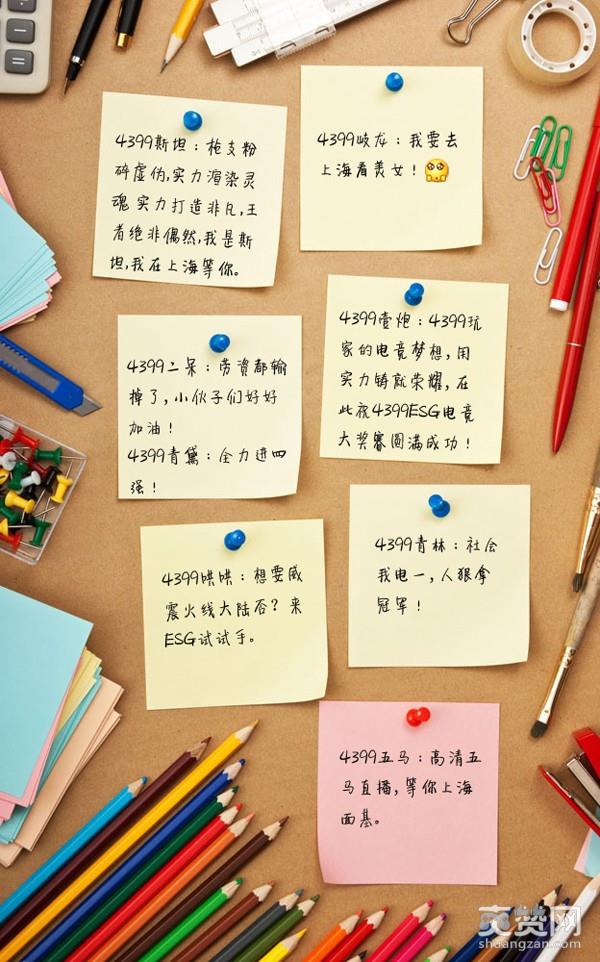 4399斯坦：枪支粉
碎虚伪,实力渲染灵
魂 实力打造非凡,王
者绝非偶然,我是斯
坦,我在上海等你。
4399岐龙：我要去
上海看美女！
4399壹炮：4399玩
家的电竞梦想，用
实力铸就荣耀，在
此祝4399ESG电竞
大奖赛圆满成功！
4399二呆：劳资都输
掉了，小伙子们好好
加油！
4399青黛：全力进四
强！
4399青林：社会
我电一，人狠拿
冠军！
4399哄哄：想要威
震火线大陆否？来
ESG试试手。
4399五马：高清五
马直播，等你上海
面基。
爽赞网
shuangzan.com